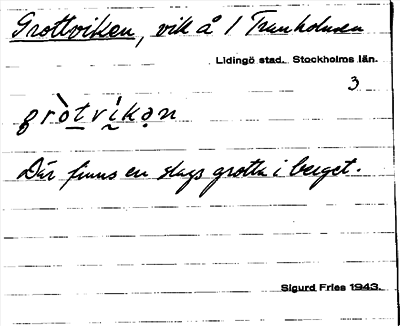 Grottviken, vik å 1 Tranholmen
Lidingö stad. Stockholms län.
3
gròtvíkən
Där finns en slags grotta i berget.
Sigurd Fries 1943.